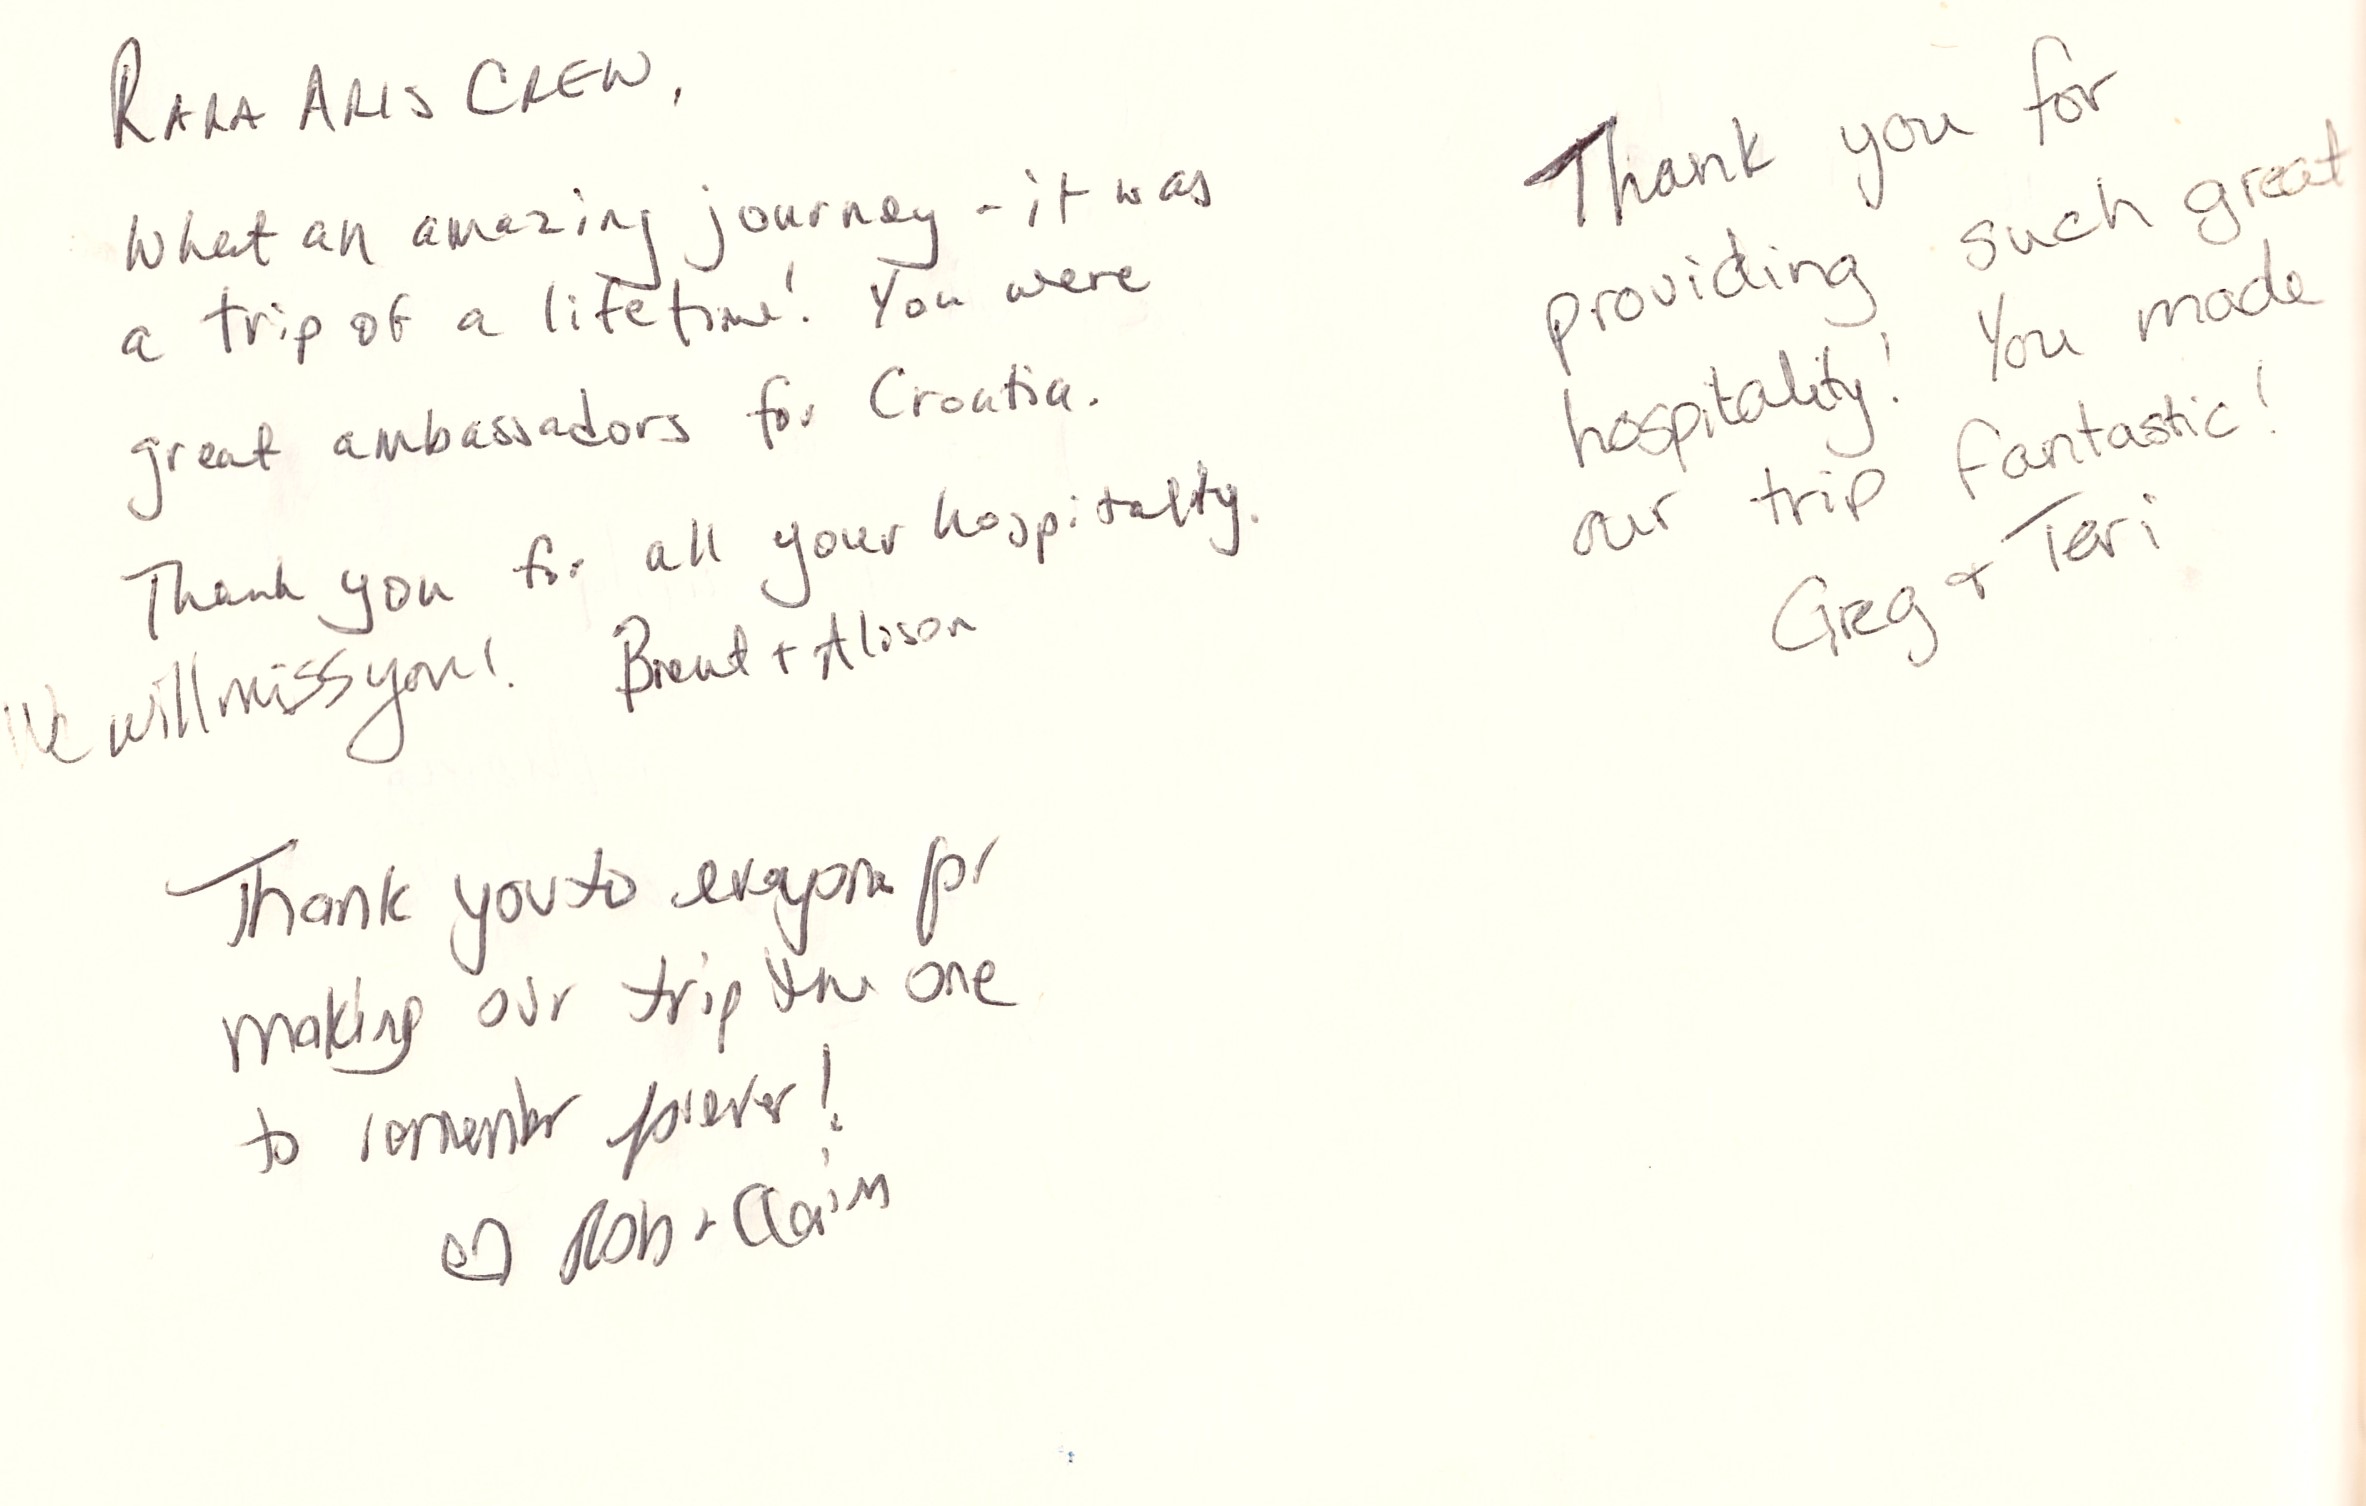 RARA ARIS CREW,
What an amazing journey - it was
a trip of a lifetime! You were
great ambassadors for Croatia.
Thank you for all your hospitalty.
We will miss you! Brent + Alison
Thank you to everyone for
making our trip the one
to remember forever!
♡ Rob + Claire
Thank you for
providing such great
hospitality! You made
our trip fantastic!
Greg + Teri